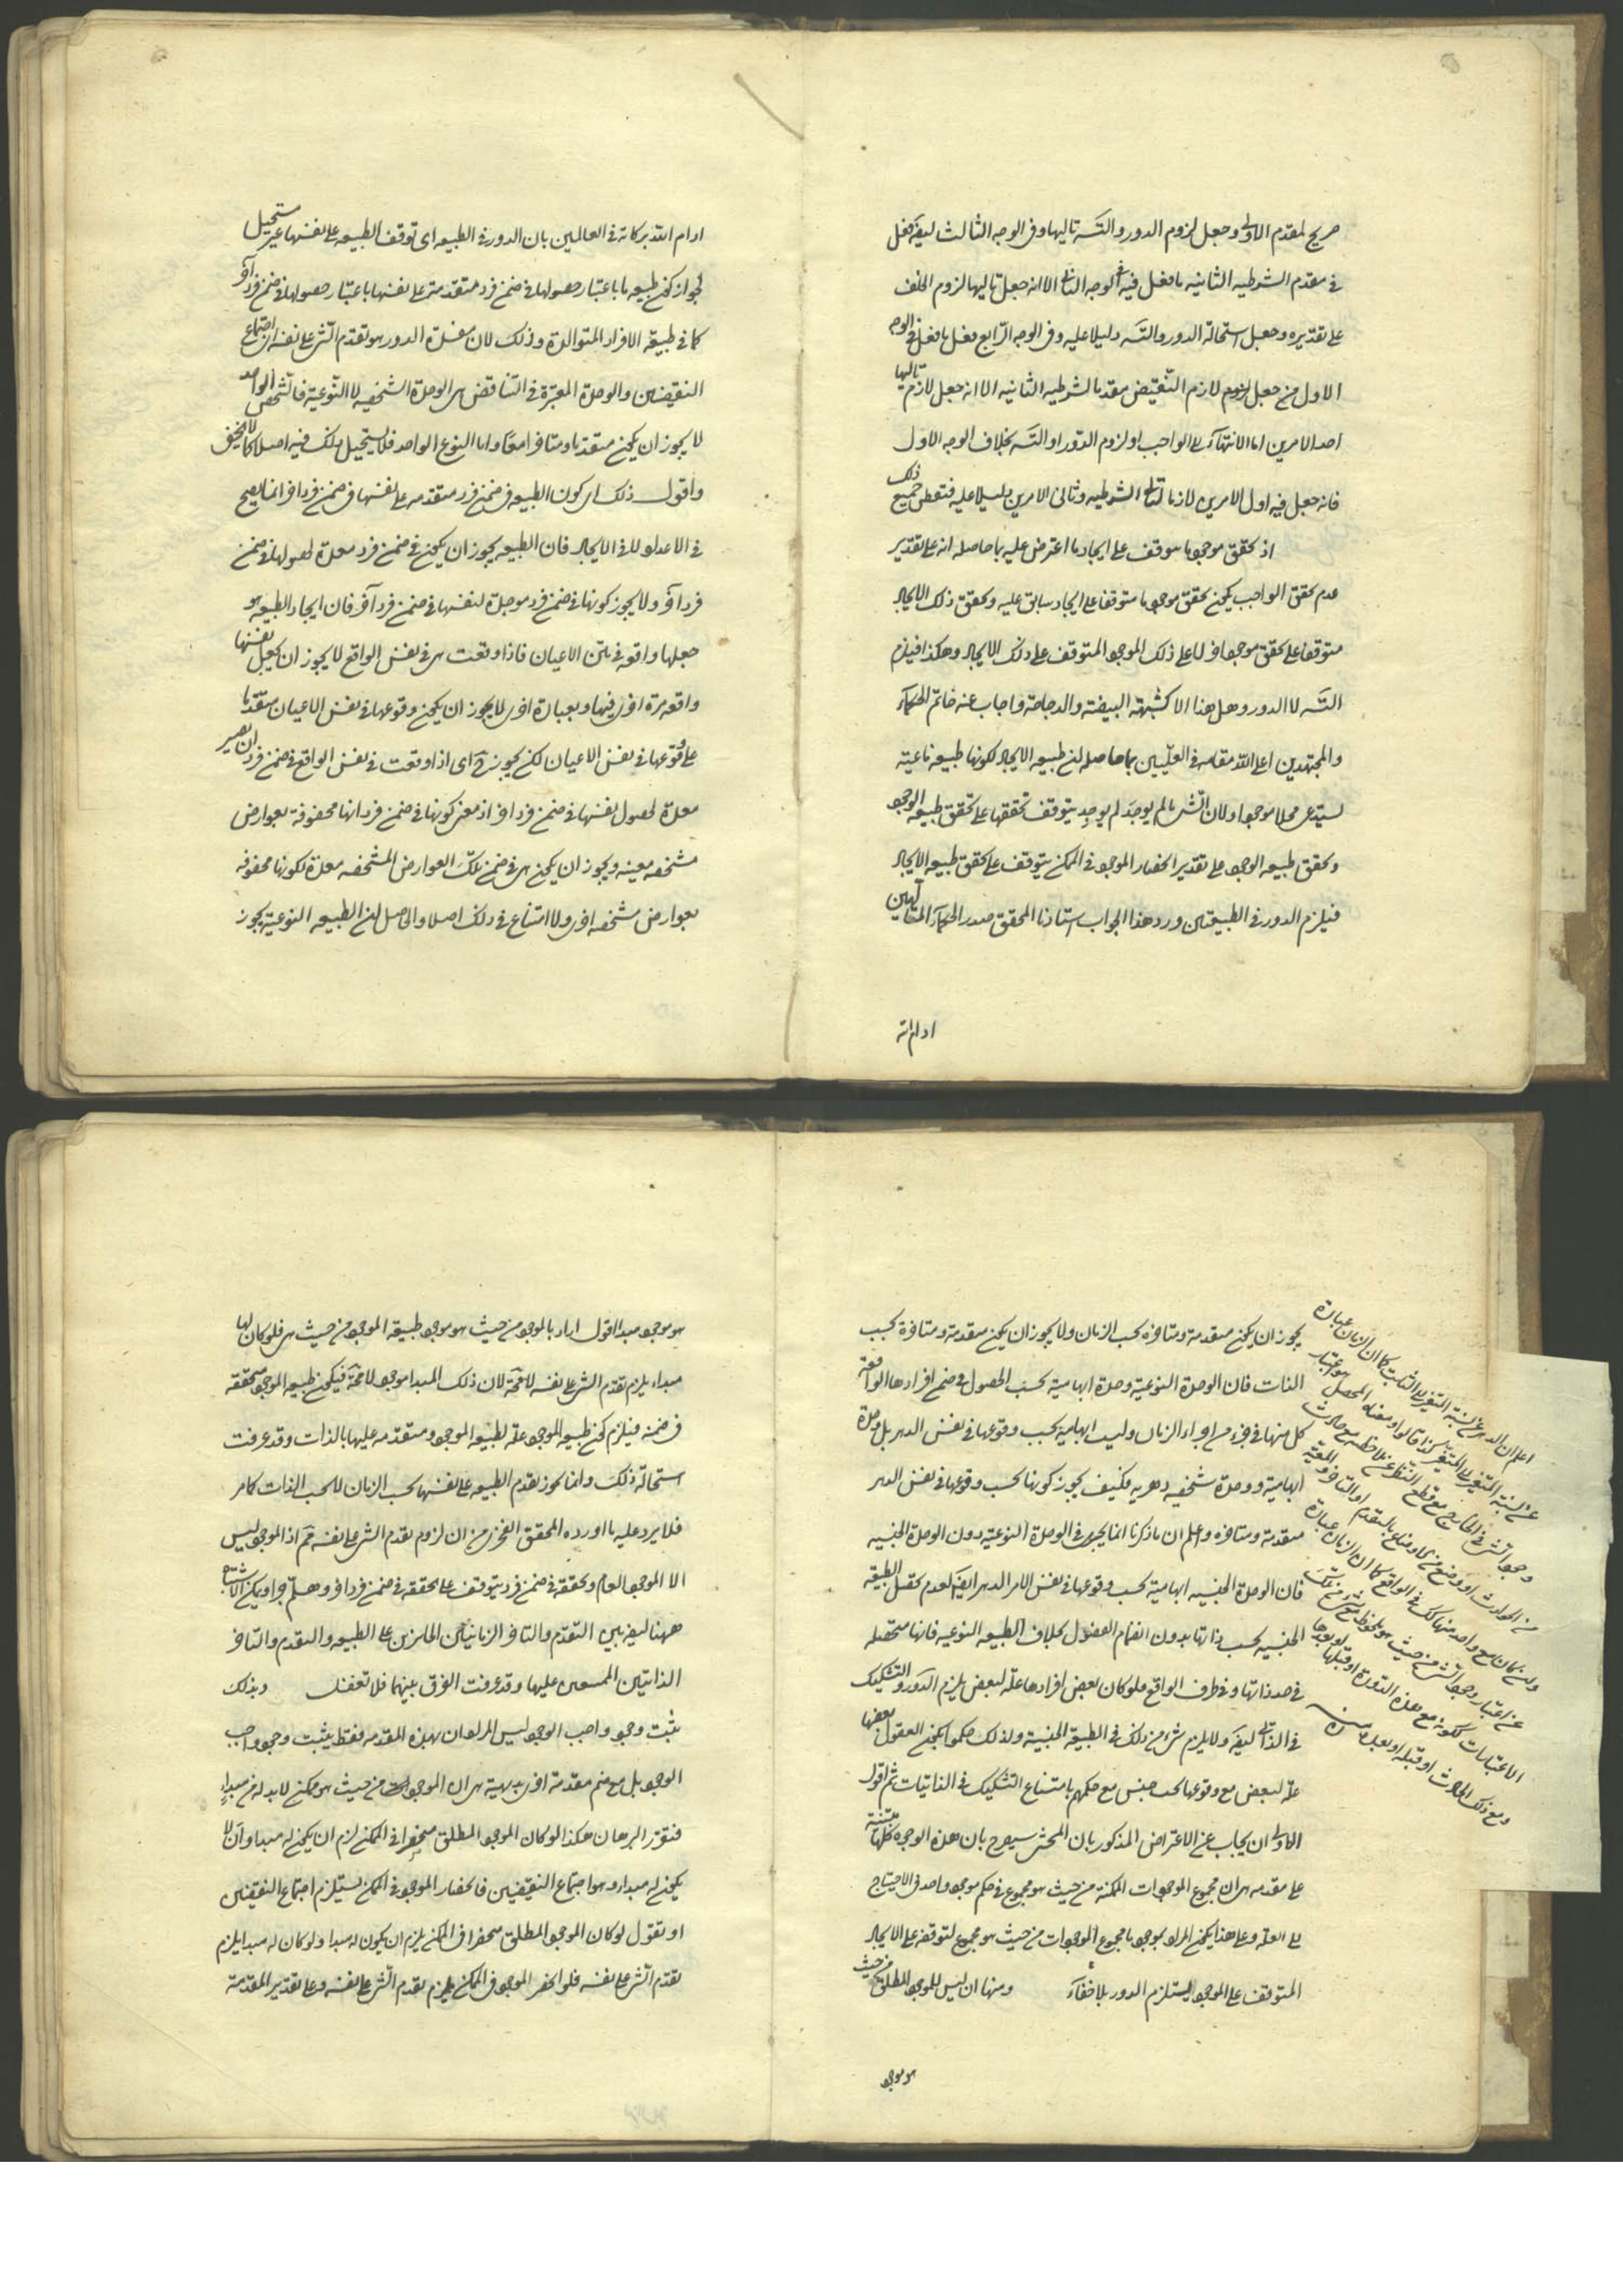 صريح لمقدم الاولى وجعل لزوم الدور والتسه تاليها وفى الوجه الثالث ايضا فعل
فى مقدم الشرطيه الثانيه ما فعل فيه فى الوجه الثانى الا انه جعل تاليها لزوم الخلف
على تقديره وجعل استحالة الدور والتسه دليلا عليه وفى الوجه الرابع فعل ما فعل فى الوجه
الاول من جعل لزوم لازم النقيض مقدما لشرطيه الثانيه الا انه جعل لازم تاليها
احد الامرين اما الانتهاء الى الواجب او لزوم الدور او التسه بخلاف الوجه الاول
فانه جعل فيه اول الامرين لازما لتالى الشرطيه وثانى الامرين دليلا عليه فتفطن جميع ذلك
اذ تحقق موجود ما يتوقف على ايجاد ما اعترض عليه بما حاصله انه على تقدير
عدم تحقق الواجب يكون تحقق موجود ما متوقفا على ايجاد سابق عليه وتحقق ذلك الايجاد
متوقفا على تحقق موجود اخر لا على ذلك الموجود المتوقف على ذلك الايجاد وهكذا فيلزم
التسه لا الدور وهل هذا الا كشبهة البيضة والدجاجة واجاب عنه خاتم الحكماء
والمجتهدين اعلى الله مقامه فى العليين بما حاصله ان طبيعه الايجاد لكونها طبيعه ناعتيه
يستدعى محلا موجودا ولان الشى ما لم يوجد لم يوجد يتوقف تحققها على تحقق طبيعه الوجود
وتحقق طبيعه الوجود على تقدير انحصار الموجود فى الممكن يتوقف على تحقق طبيعه الايجاد
فيلزم الدور فى الطبيعتين ورد هذا الجواب استاذنا المحقق صدر الحكماء المتالهين
ادام الله
ادام الله بركاته فى العالمين بان الدور فى الطبيعه اى توقف الطبيعه على نفسها غير مستحيل
لجواز كون طبيعه ما باعتبار حصولها فى ضمن فرد متقدمة على نفسها باعتبار حصولها فى ضمن فرد آخر
كما فى طبيعة الافراد المتوالدة وذلك لان مفسدة الدور هو تقدم الشى على نفسه اى اجتماع
النقيضين والوحدة المعتبرة فى التناقض هى الوحدة الشخصيه لا النوعية فالشخص الواحد
لا يجوز ان يكون متقدما ومتاخرا معا واما النوع الواحد فلا يستحيل ذلك فيه اصلا كما لا يخفى
واقول ذلك اى كون الطبيعه فى ضمن فرد متقدمه على نفسها فى ضمن فرد اخر انما يصح
فى الاعداد لا فى الايجاد فان الطبيعه يجوز ان يكون فى ضمن فرد معدة لحصولها فى ضمن
فرد آخر ولا يجوز كونها فى ضمن فرد موجدة لنفسها فى ضمن فرد آخر فان ايجاد الطبيعه هو
جعلها واقعه فى متن الاعيان فاذا وقعت هى فى نفس الواقع لا يجوز ان يجعل نفسها
واقعه مرة اخرى فيها وبعبارة اخرى لا يجوز ان يكون وقوعها فى نفس الاعيان متقدما
على وقوعها فى نفس الاعيان لكن يجوز اى اذا وقعت فى نفس الواقع فى ضمن فرد ان يصير
معدة لحصول نفسها فى ضمن فرد اخر اذ معنى كونها فى ضمن فرد انها محفوفة بعوارض
مشخصه معينه ويجوز ان يكون هى فى ضمن تلك العوارض المشخصه معدة لكونها محفوفه
بعوارض مشخصه اخرى ولا امتناع فى ذلك اصلا والحاصل ان الطبيعه النوعية يجوز
يجوز ان يكون متقدمة ومتاخرة بحسب الزمان ولا يجوز ان يكون متقدمة ومتاخرة بحسب
الذات فان الوحدة النوعية وحدة ابهامية بحسب الحصول فى ضمن افرادها الواقعة
كل منها فى جزء من اجزاء الزمان وليست ابهامية بحسب وقوعها فى نفس الدهر بل وحدة
ابهامية ووحدة شخصيه دهريه فكيف يجوز كونها بحسب وقوعها فى نفس الدهر
متقدمة ومتاخرة واعلم ان ما ذكرنا انما يجرى فى الوحدة النوعية دون الوحدة الجنسيه
فان الوحدة الجنسيه ابهامية بحسب وقوعها فى نفس الامر الدهر ايضا لعدم تحصل الطبيعة
الجنسيه بحسب ذاتها بدون انضمام الفصول بخلاف الطبيعه النوعيه فانها متحصله
فى حد ذاتها وفى ظرف الواقع فلو كان بعض افرادها علة لبعض يلزم الدور والتشكيك
فى الذاتى ايضا ولا يلزم شىء من ذلك فى الطبيعة الجنسية ولذلك حكموا بكون العقول بعضها
علة لبعض مع وقوعها تحت جنس مع حكمهم بامتناع التشكيك فى الذاتيات ثم اقول
الاولى ان يجاب عن الاعتراض المذكور بان المحشى سيصرح بان هذه الوجوه كلها مبتنية
على مقدمه هى ان مجموع الموجودات الممكنة من حيث هو مجموع فى حكم موجود واحد فى الاحتياج
الى العلة وعلى هذا يكون المراد بموجود ما مجموع الموجودات من حيث هو مجموع لتوقفه على الايجاد
المتوقف على الموجود يستلزم الدور بلا خفاء ومنها ان ليس للموجود المطلق من حيث
هو موجود
اعلم ان الدهر عن نسبة المتغير الى الثابت كما ان الزمان عبارة
عن نسبة المتغير الى المتغير كذا قالوا ومعناه المحصل هو اعتبار
وجود الشى فى الخارج مع قطع النظر عن ملاحظته مع حادث
من الحوادث
هو موجود مبدا اقول اراد بالموجود من حيث هو موجود طبيعة الموجود من حيث هى فلو كان لها
مبداء يلزم تقدم الشى على نفسه لا محة لان ذلك المبدا موجود لا محة فيكون طبيعه الموجود متحققه
فى ضمنه فيلزم كون طبيعه الموجود علة لطبيعه الموجود ومتقدمه عليها بالذات وقد عرفت
استحالة ذلك وانما يجوز تقدم الطبيعه على نفسها بحسب الزمان لا بحسب الذات كما مر
فلا يرد عليه ما اورده المحقق الفخرى من ان لزوم تقدم الشى على نفسه مم اذ الموجود ليس
الا الموجود العام وتحققه فى ضمن فرد يتوقف على تحققه فى ضمن فرد اخر وهلم جرا ويكون الاشتباه
ههنا ايضا بين التقدم والتاخر الزمانيين الجايزين على الطبيعه والتقدم والتاخر
الذاتيين الممتنعين عليها وقد عرفت الفرق بينهما فلا تغفل وبذلك
يثبت وجود واجب الوجود ليس المراد ان بهذه المقدمه فقط يثبت وجود واجب
الوجود بل مع ضم مقدمة اخرى بديهية هى ان الموجود من حيث هو ممكن لا بد له من مبداء
فتقرر البرهان هكذا لو كان الموجود المطلق منحصرا فى الممكن لزم ان يكون له مبدا وان لا
يكون له مبداء وهو اجتماع النقيضين فانحصار الموجود فى الممكن يستلزم اجتماع النقيضين
او نقول لو كان الموجود المطلق منحصرا فى الممكن يلزم ان يكون له مبدا ولو كان له مبدا يلزم
تقدم الشى على نفسه فلو انحصر الموجود فى الممكن يلزم تقدم الشى على نفسه وعلى تقدير المقدمة